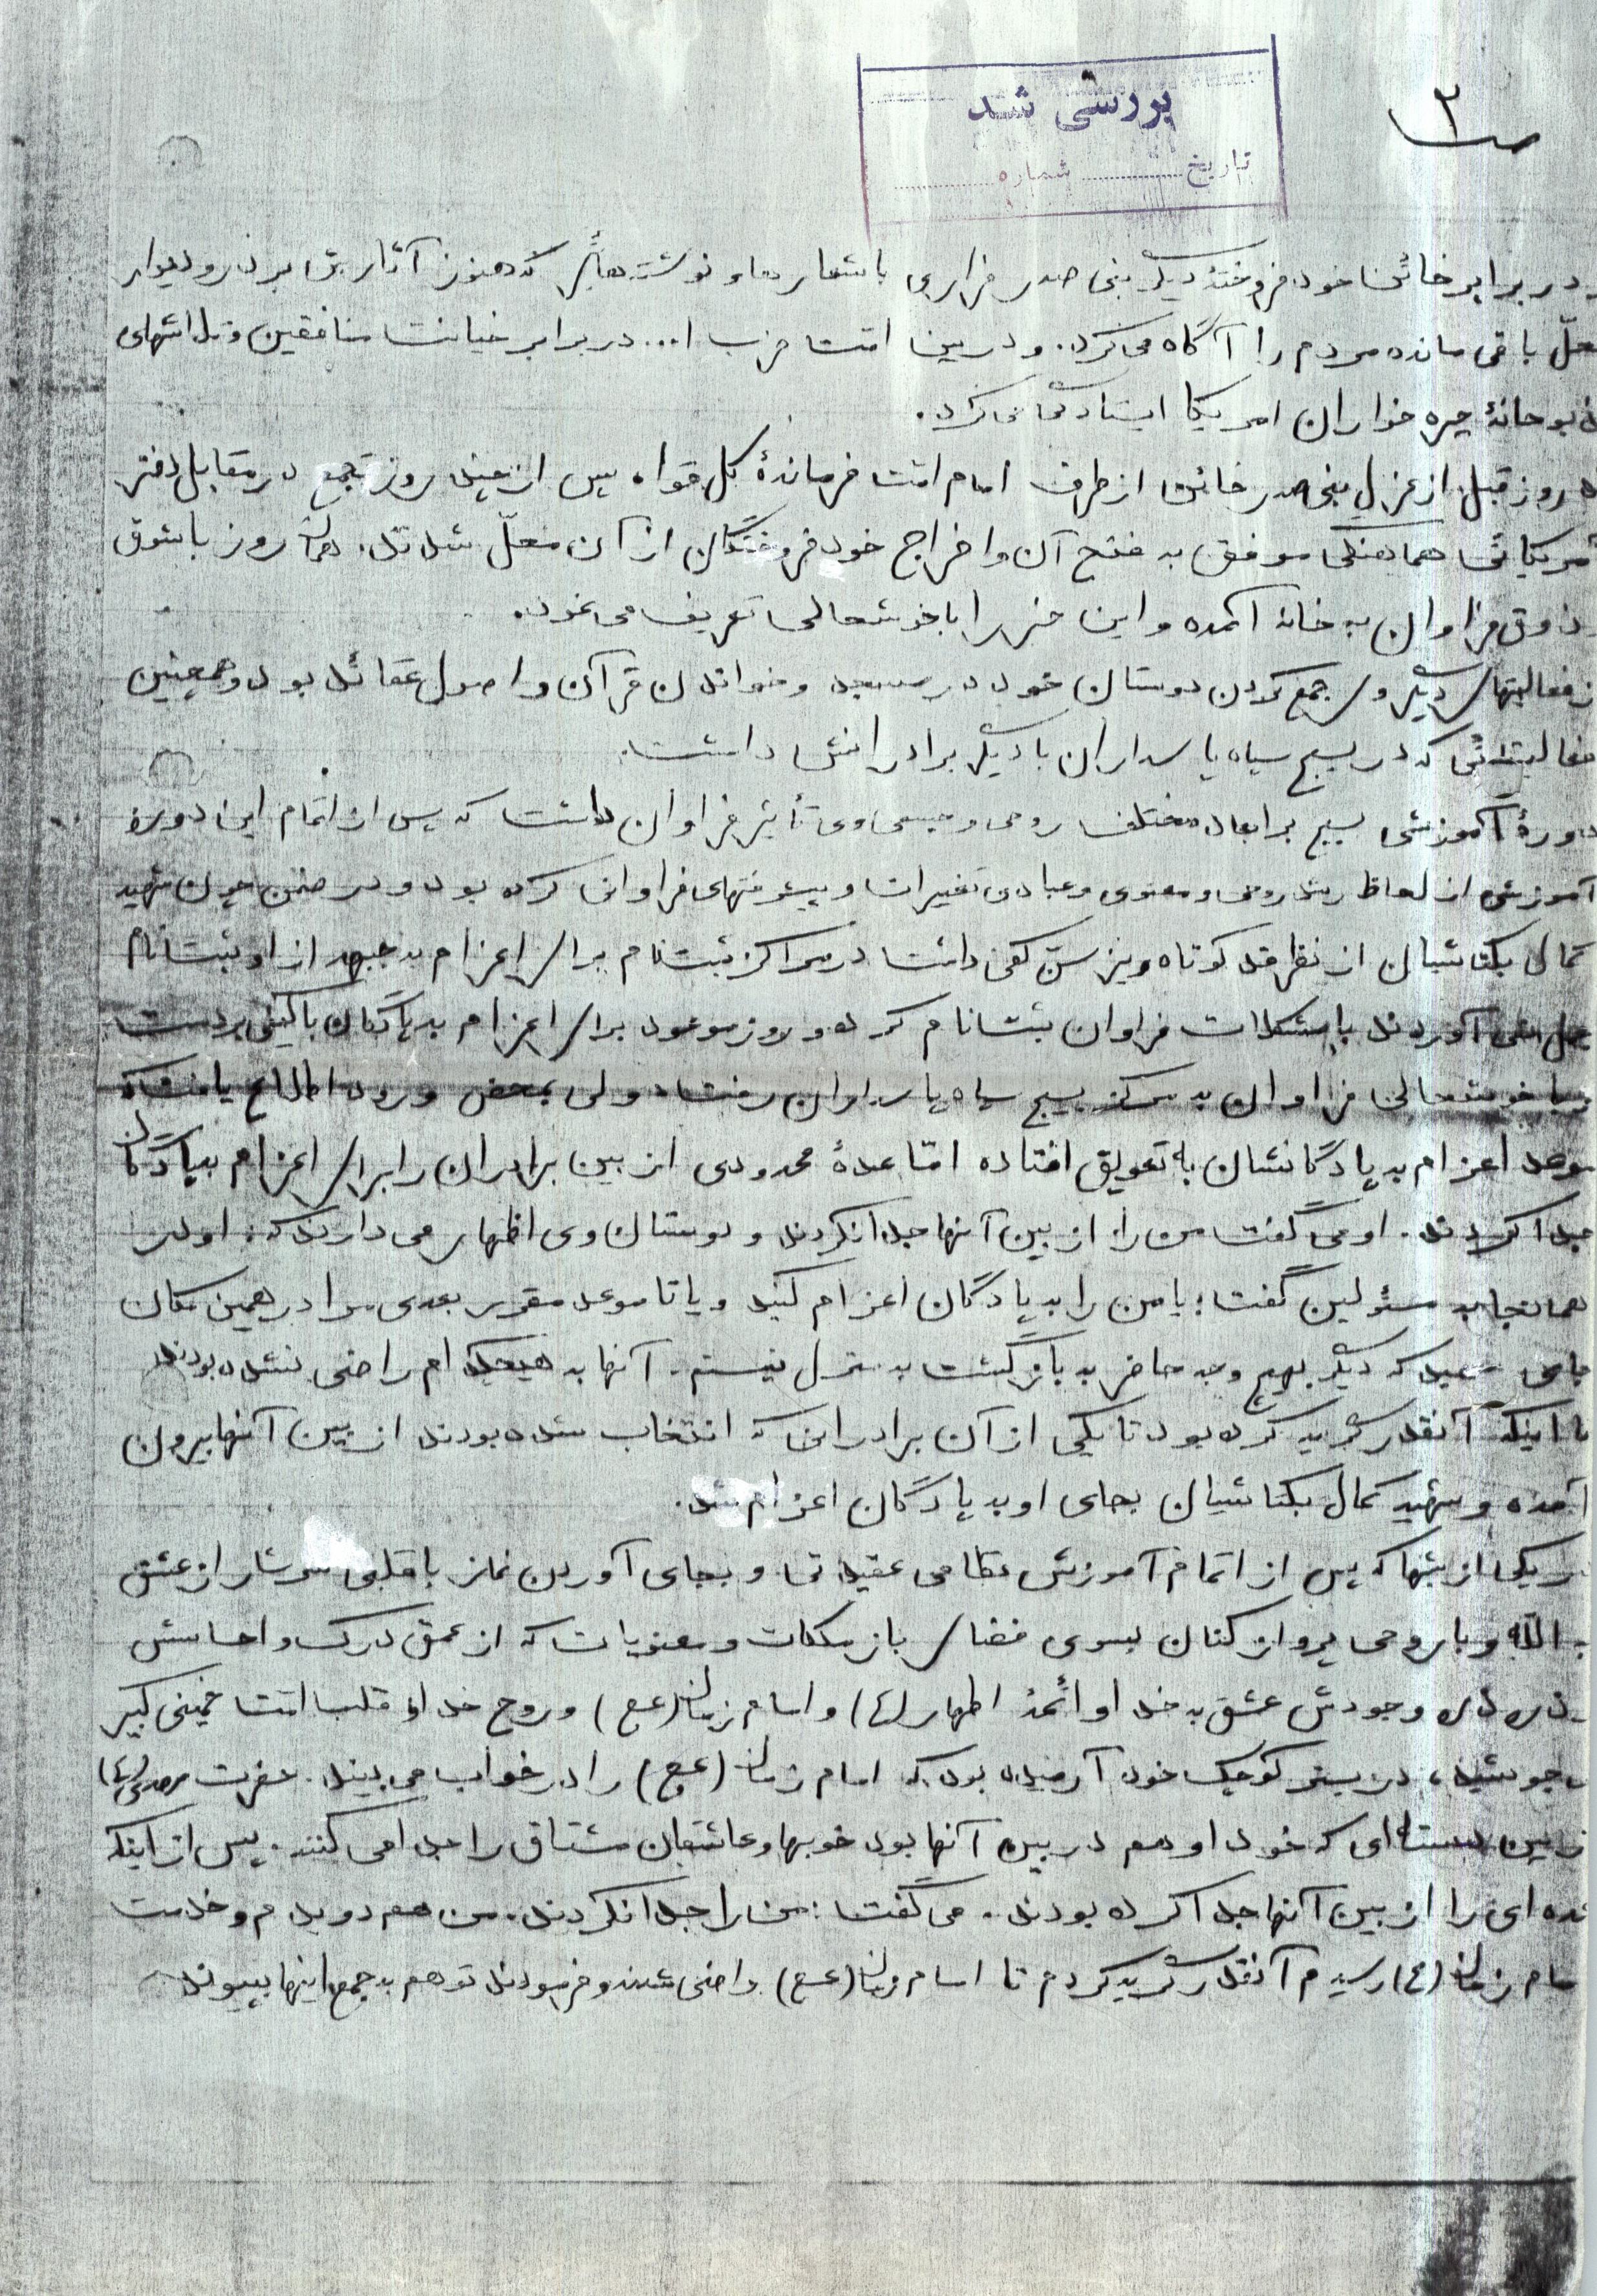 ص ۲
بررسی شد
تاریخ ............ شماره ............
در برابر خائنان خود فروختهٔ دیگر بنی صدر فراری با شعارها و نوشته هائی که هنوز آثارش بر در و دیوار
محلّ باقی مانده مردم را آگاه می کرد. و در بین امت حزب ا... در برابر خیانت منافقین و
جیره خواران امریکا ایستادگی می کرد.
روز قبل از عزل بنی صدر خائن از طرف امام امت فرماندهٔ کل قوا، پس از چند روز تجمع در مقابل دفتر
هماهنگی موفق به فتح آن و اخراج خود فروختگان از آن محلّ شدند. همان روز با شوق
و ذوق فراوان به خانه آمده و این خبر را با خوشحالی تعریف می نمود.
از فعالیتهای دیگر وی جمع کردن دوستان خود در مسجد و خواندن قرآن و اصول عقائد بود و همچنین
فعالیتهائی که در بسیج سپاه پاسداران با دیگر برادرانش داشت.
دورهٔ آموزشی بسیج بر ابعاد مختلف روحی و جسمی وی تأثیر فراوان داشت که پس از اتمام این دوره
آموزشی از لحاظ رشد روحی و معنوی و عبادی تغییرات و پیشرفتهای فراوانی کرده بود و در ضمن چون شهید
کمال بکتاشیان از نظر قد کوتاه و نیز سن کمی داشت در مراکز ثبت نام برای اعزام به جبهه از او ثبت نام
بعمل نمی آوردند با مشکلات فراوان ثبت نام کرده و روز موعود برای اعزام به پادگان با کیفی بر دست
و با خوشحالی فراوان به مرکز بسیج سپاه پاسداران رفت. ولی بمحض ورود اطلاع یافت که
موعد اعزام به پادگانشان به تعویق افتاده امّا عدهٔ محدودی از بین برادران را برای اعزام به پادگان
جدا کردند. او می گفت من را از بین آنها جدا نکردند و دوستان وی اظهار می دارند که: او در
همانجا به مسئولین گفت: یا من را به پادگان اعزام کنید و یا تا موعد مقرر بعدی مرا در همین مکان
جای دهید که دیگر بهیچ وجه حاضر به بازگشت به منزل نیستم. آنها به هیچکدام راضی نشده بودند
تا اینکه آنقدر گریه کرده بود تا یکی از آن برادرانی که انتخاب شده بودند از بین آنها بیرون
آمده و شهید کمال بکتاشیان بجای او به پادگان اعزام شد.
در یکی از شبها که پس از اتمام آموزش نظامی عقیدتی و بجای آوردن نماز با قلبی سرشار از عشق
به اللّه و با روحی پرواز کنان بسوی فضای باز ملکات و معنویات که از عمق درک و احساسش
ذره ذره وجودش عشق به خدا و ائمهٔ اطهار (ع) و امام زمان (عج) و روح خدا و قلب امت خمینی کبیر
می جوشید، در بستر کوچک خود آرمیده بود که امام زمان (عج) را در خواب می بیند. حضرت مهدی (ع)
از بین دسته ای که خود او هم در بین آنها بود خوبها و عاشقان مشتاق را جدا می کنند. پس از اینکه
عده ای را از بین آنها جدا کرده بودند. می گفت: من را جدا نکردند. من هم دویدم و خدمت
امام زمان (ع) رسیدم آنقدر گریه کردم تا امام زمان (عج) راضی شدند و فرمودند تو هم به جمع اینها بپیوند